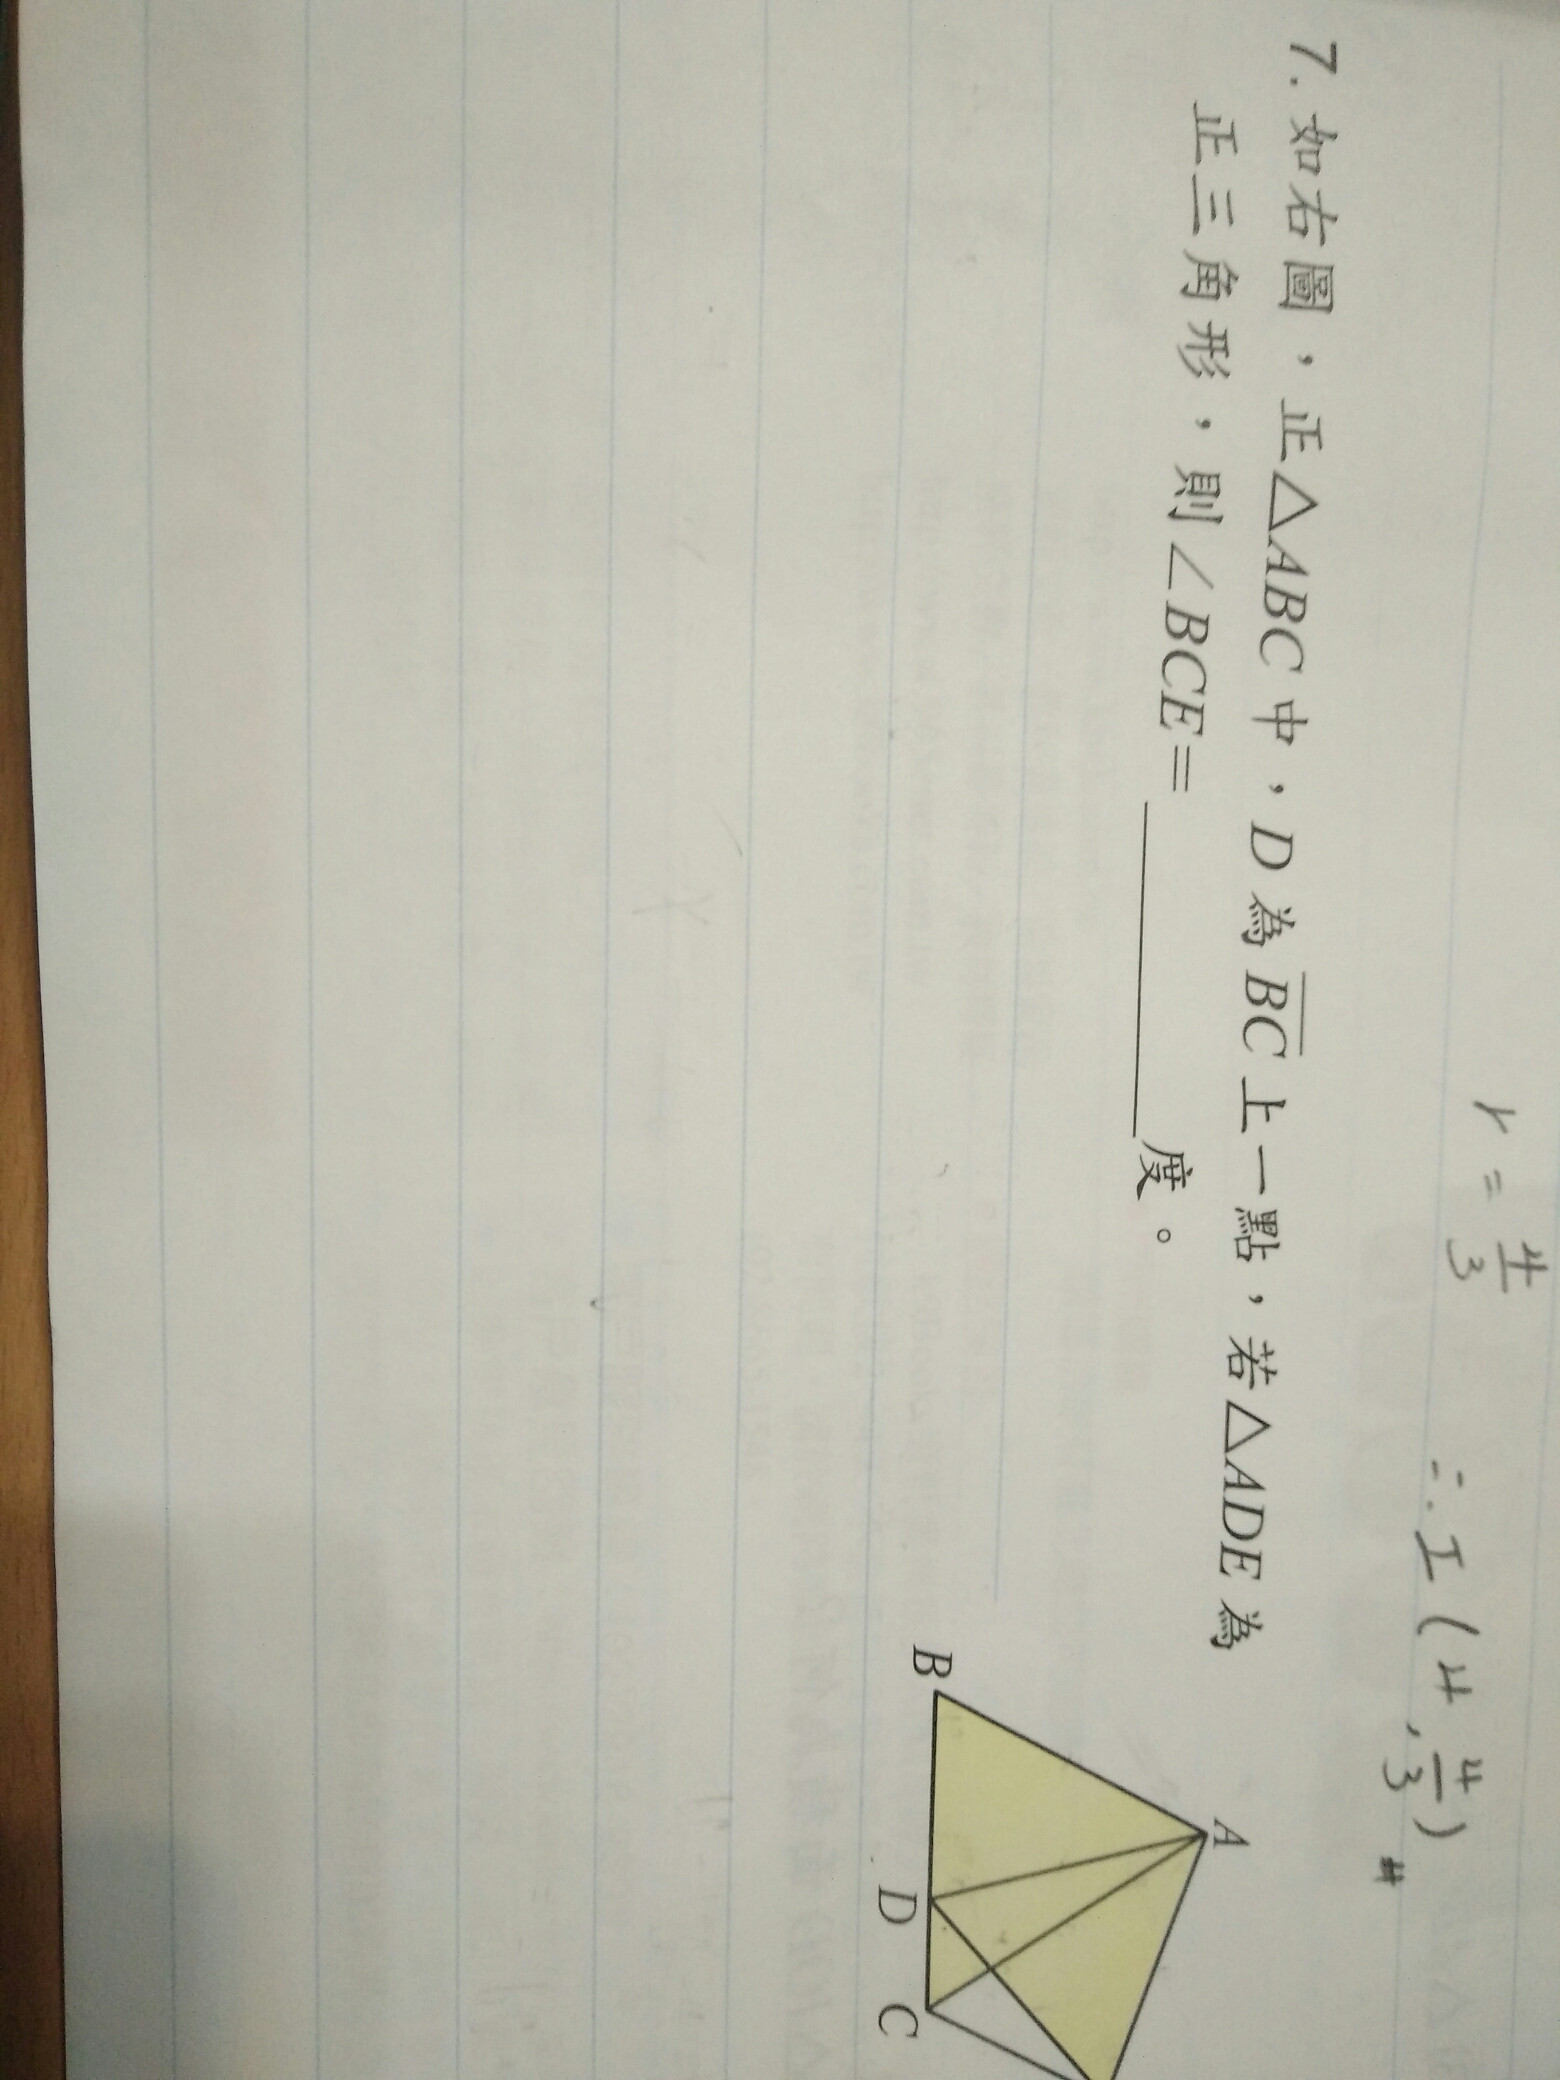 r = 4/3 ∴ I (4, 4/3) #
7. 如右圖，正△ABC 中，D 為 BC 上一點，若△ADE 為
正三角形，則∠BCE=________度。
A
B
D
C